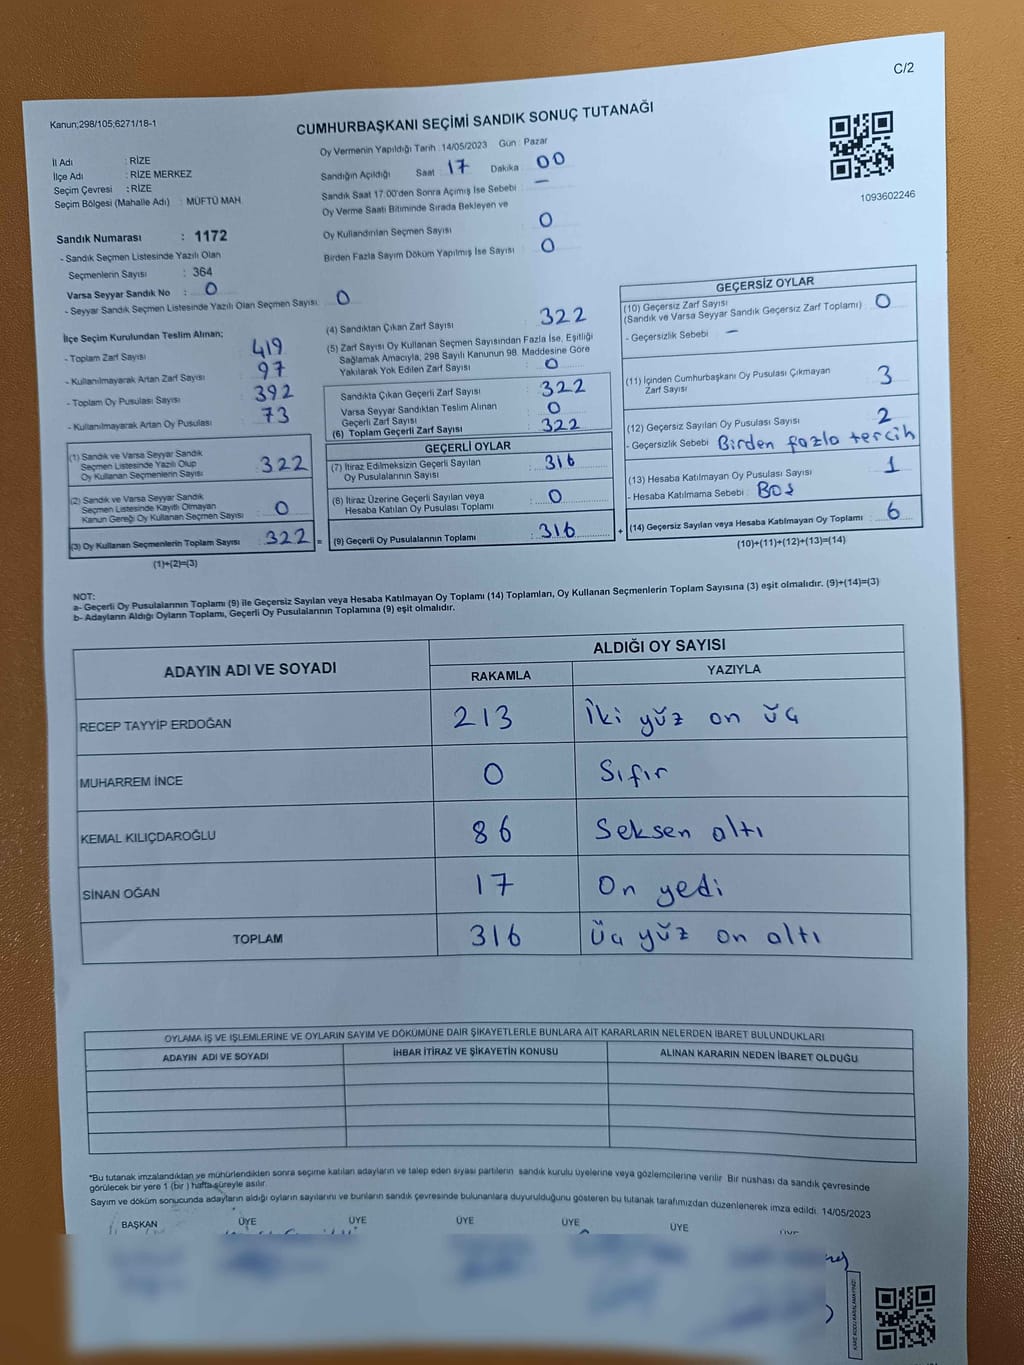 C/2
Kanun;298/105;6271/18-1
CUMHURBAŞKANI SEÇİMİ SANDIK SONUÇ TUTANAĞI
1093602246
İl Adı : RİZE
İlçe Adı : RİZE MERKEZ
Seçim Çevresi : RİZE
Seçim Bölgesi (Mahalle Adı) : MÜFTÜ MAH.
Oy Vermenin Yapıldığı Tarih : 14/05/2023 Gün : Pazar
Sandığın Açıldığı Saat 17 Dakika 00
Sandık Saat 17:00'den Sonra Açımış İse Sebebi : —
Oy Verme Saati Bitiminde Sırada Bekleyen ve
Oy Kullandırılan Seçmen Sayısı : 0
Birden Fazla Sayım Döküm Yapılmış İse Sayısı : 0
Sandık Numarası : 1172
- Sandık Seçmen Listesinde Yazılı Olan
Seçmenlerin Sayısı : 364
Varsa Seyyar Sandık No : 0
- Seyyar Sandık Seçmen Listesinde Yazılı Olan Seçmen Sayısı: 0
İlçe Seçim Kurulundan Teslim Alınan;
- Toplam Zarf Sayısı 419
- Kullanılmayarak Artan Zarf Sayısı 97
- Toplam Oy Pusulası Sayısı 392
- Kullanılmayarak Artan Oy Pusulası 73
(1) Sandık ve Varsa Seyyar Sandık
Seçmen Listesinde Yazılı Olup
Oy Kullanan Seçmenlerin Sayısı : 322
(2) Sandık ve Varsa Seyyar Sandık
Seçmen Listesinde Kayıtlı Olmayan
Kanun Gereği Oy Kullanan Seçmen Sayısı : 0
(3) Oy Kullanan Seçmenlerin Toplam Sayısı : 322 =
(1)+(2)=(3)
(4) Sandıktan Çıkan Zarf Sayısı : 322
(5) Zarf Sayısı Oy Kullanan Seçmen Sayısından Fazla İse, Eşitliği
Sağlamak Amacıyla, 298 Sayılı Kanunun 98. Maddesine Göre
Yakılarak Yok Edilen Zarf Sayısı : 0
Sandıkta Çıkan Geçerli Zarf Sayısı : 322
Varsa Seyyar Sandıktan Teslim Alınan
Geçerli Zarf Sayısı : 0
(6) Toplam Geçerli Zarf Sayısı : 322
GEÇERLİ OYLAR
(7) İtiraz Edilmeksizin Geçerli Sayılan
Oy Pusulalarının Sayısı : 316
(8) İtiraz Üzerine Geçerli Sayılan veya
Hesaba Katılan Oy Pusulası Toplamı : 0
(9) Geçerli Oy Pusulalarının Toplamı : 316 +
GEÇERSİZ OYLAR
(10) Geçersiz Zarf Sayısı
(Sandık ve Varsa Seyyar Sandık Geçersiz Zarf Toplamı) : 0
- Geçersizlik Sebebi : —
(11) İçinden Cumhurbaşkanı Oy Pusulası Çıkmayan
Zarf Sayısı : 3
(12) Geçersiz Sayılan Oy Pusulası Sayısı : 2
- Geçersizlik Sebebi : Birden fazla tercih
(13) Hesaba Katılmayan Oy Pusulası Sayısı : 1
- Hesaba Katılmama Sebebi : Boş
(14) Geçersiz Sayılan veya Hesaba Katılmayan Oy Toplamı : 6
(10)+(11)+(12)+(13)=(14)
NOT:
a- Geçerli Oy Pusulalarının Toplamı (9) ile Geçersiz Sayılan veya Hesaba Katılmayan Oy Toplamı (14) Toplamları, Oy Kullanan Seçmenlerin Toplam Sayısına (3) eşit olmalıdır. (9)+(14)=(3)
b- Adayların Aldığı Oyların Toplamı, Geçerli Oy Pusulalarının Toplamına (9) eşit olmalıdır.
ADAYIN ADI VE SOYADI
ALDIĞI OY SAYISI
RAKAMLA YAZIYLA
RECEP TAYYİP ERDOĞAN 213 İki yüz on üç
MUHARREM İNCE 0 Sıfır
KEMAL KILIÇDAROĞLU 86 Seksen altı
SİNAN OĞAN 17 On yedi
TOPLAM 316 Üç yüz on altı
OYLAMA İŞ VE İŞLEMLERİNE VE OYLARIN SAYIM VE DÖKÜMÜNE DAİR ŞİKAYETLERLE BUNLARA AİT KARARLARIN NELERDEN İBARET BULUNDUKLARI
ADAYIN ADI VE SOYADI İHBAR İTİRAZ VE ŞİKAYETİN KONUSU ALINAN KARARIN NEDEN İBARET OLDUĞU
*Bu tutanak imzalandıktan ve mühürlendikten sonra seçime katılan adayların ve talep eden siyasi partilerin sandık kurulu üyelerine veya gözlemcilerine verilir. Bir nüshası da sandık çevresinde
görülecek bir yere 1 (bir ) hafta süreyle asılır.
Sayım ve döküm sonucunda adayların aldığı oyların sayılarını ve bunların sandık çevresinde bulunanlara duyurulduğunu gösteren bu tutanak tarafımızdan düzenlenerek imza edildi. 14/05/2023
BAŞKAN ÜYE ÜYE ÜYE ÜYE ÜYE ÜYE